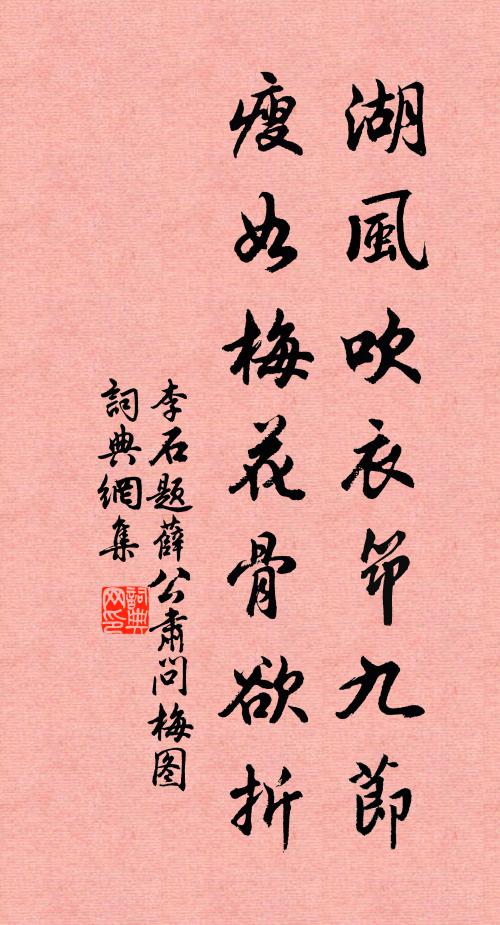 湖風吹衣筇九節
瘦如梅花骨欲折
李石題薛公肅問梅图
詞典網集
詞典网印